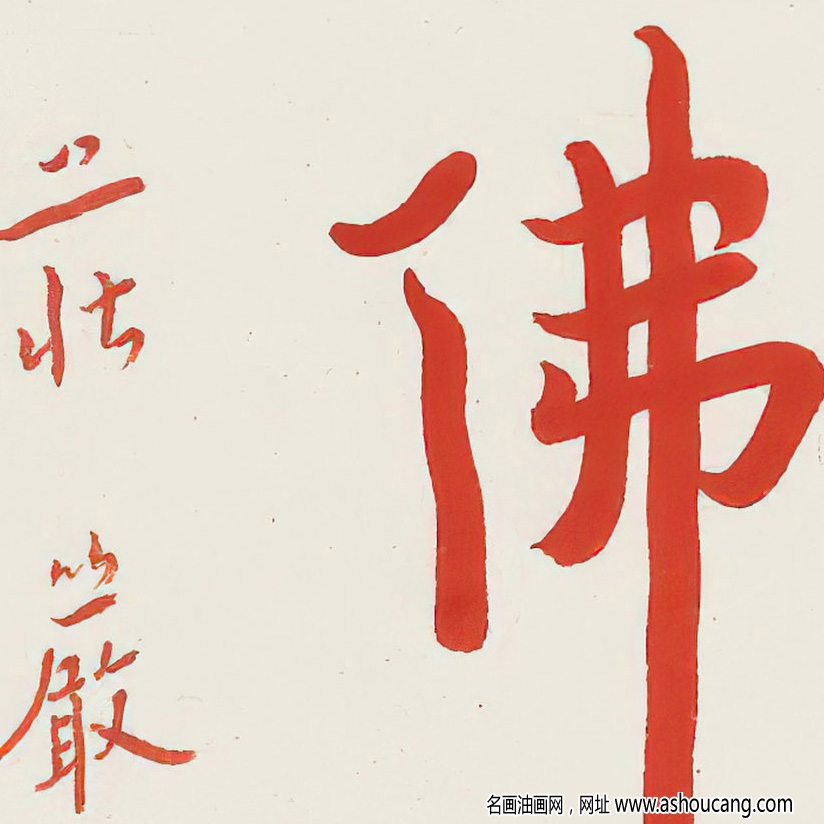 佛
莊嚴
名画油画网，网址 www.ashoucang.com